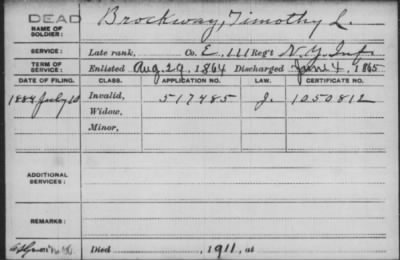 DEAD
NAME OF SOLDIER: Brockway, Timothy L.
SERVICE: Late rank, Co. E, 111 Reg't N.Y. Inf.
TERM OF SERVICE: Enlisted Aug. 29, 1864 Discharged June 4, 1865
DATE OF FILING. CLASS. APPLICATION NO. LAW. CERTIFICATE NO.
1884 July 10 Invalid, 517485 J. 1050812
Widow,
Minor,
ADDITIONAL SERVICES:
REMARKS:
Died , 1911, at